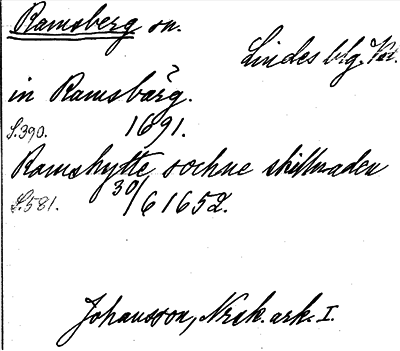 Ramsberg sn.
Lindes blg. Vm.
in Ramsbärg.
S.390. 1691.
Ramshytte sochne skillnaden
S.581. 30/6 1652.
Johansson, Nrsk. ark. I.